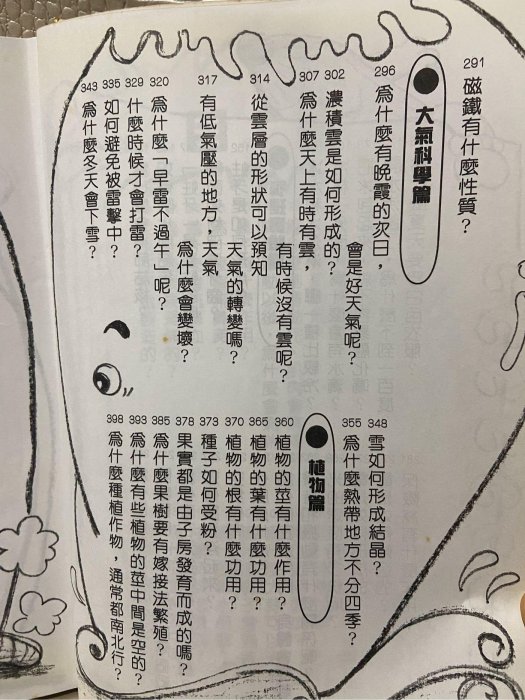 291 磁鐵有什麼性質？
●大氣科學篇
296 為什麼有晚霞的次日，
會是好天氣呢？
302 濃積雲是如何形成的？
307 為什麼天上有時有雲，
有時候沒有雲呢？
314 從雲層的形狀可以預知
天氣的轉變嗎？
317 有低氣壓的地方，天氣
為什麼會變壞？
320 為什麼「早雷不過午」呢？
329 什麼時候才會打雷？
335 如何避免被雷擊中？
343 為什麼冬天會下雪？
348 雪如何形成結晶？
355 為什麼熱帶地方不分四季？
●植物篇
360 植物的莖有什麼作用？
365 植物的葉有什麼功用？
370 植物的根有什麼功用？
373 種子如何受粉？
378 果實都是由子房發育而成的嗎？
385 為什麼果樹要有嫁接法繁殖？
393 為什麼有些植物的莖中間是空的？
398 為什麼種植作物，通常都南北行？